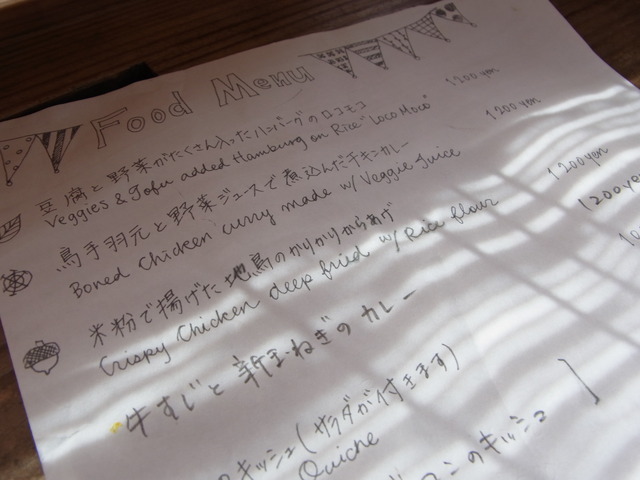 Food Menu
豆腐と野菜がたくさん入ったハンバーグのロコモコ 1200yen
Veggies & Tofu added Hamburg on Rice "Loco Moco"
鳥手羽元と野菜ジュースで煮込んだチキンカレー 1200yen
Boned Chicken curry made w/ Veggie Juice
米粉で揚げた地鳥のかりかりからあげ 1200yen
Crispy Chicken deep fried w/ Rice flour
牛すじと新玉ねぎのカレー 1200yen
のキッシュ(サラダが付きます)
Quiche
コンのキッシュ